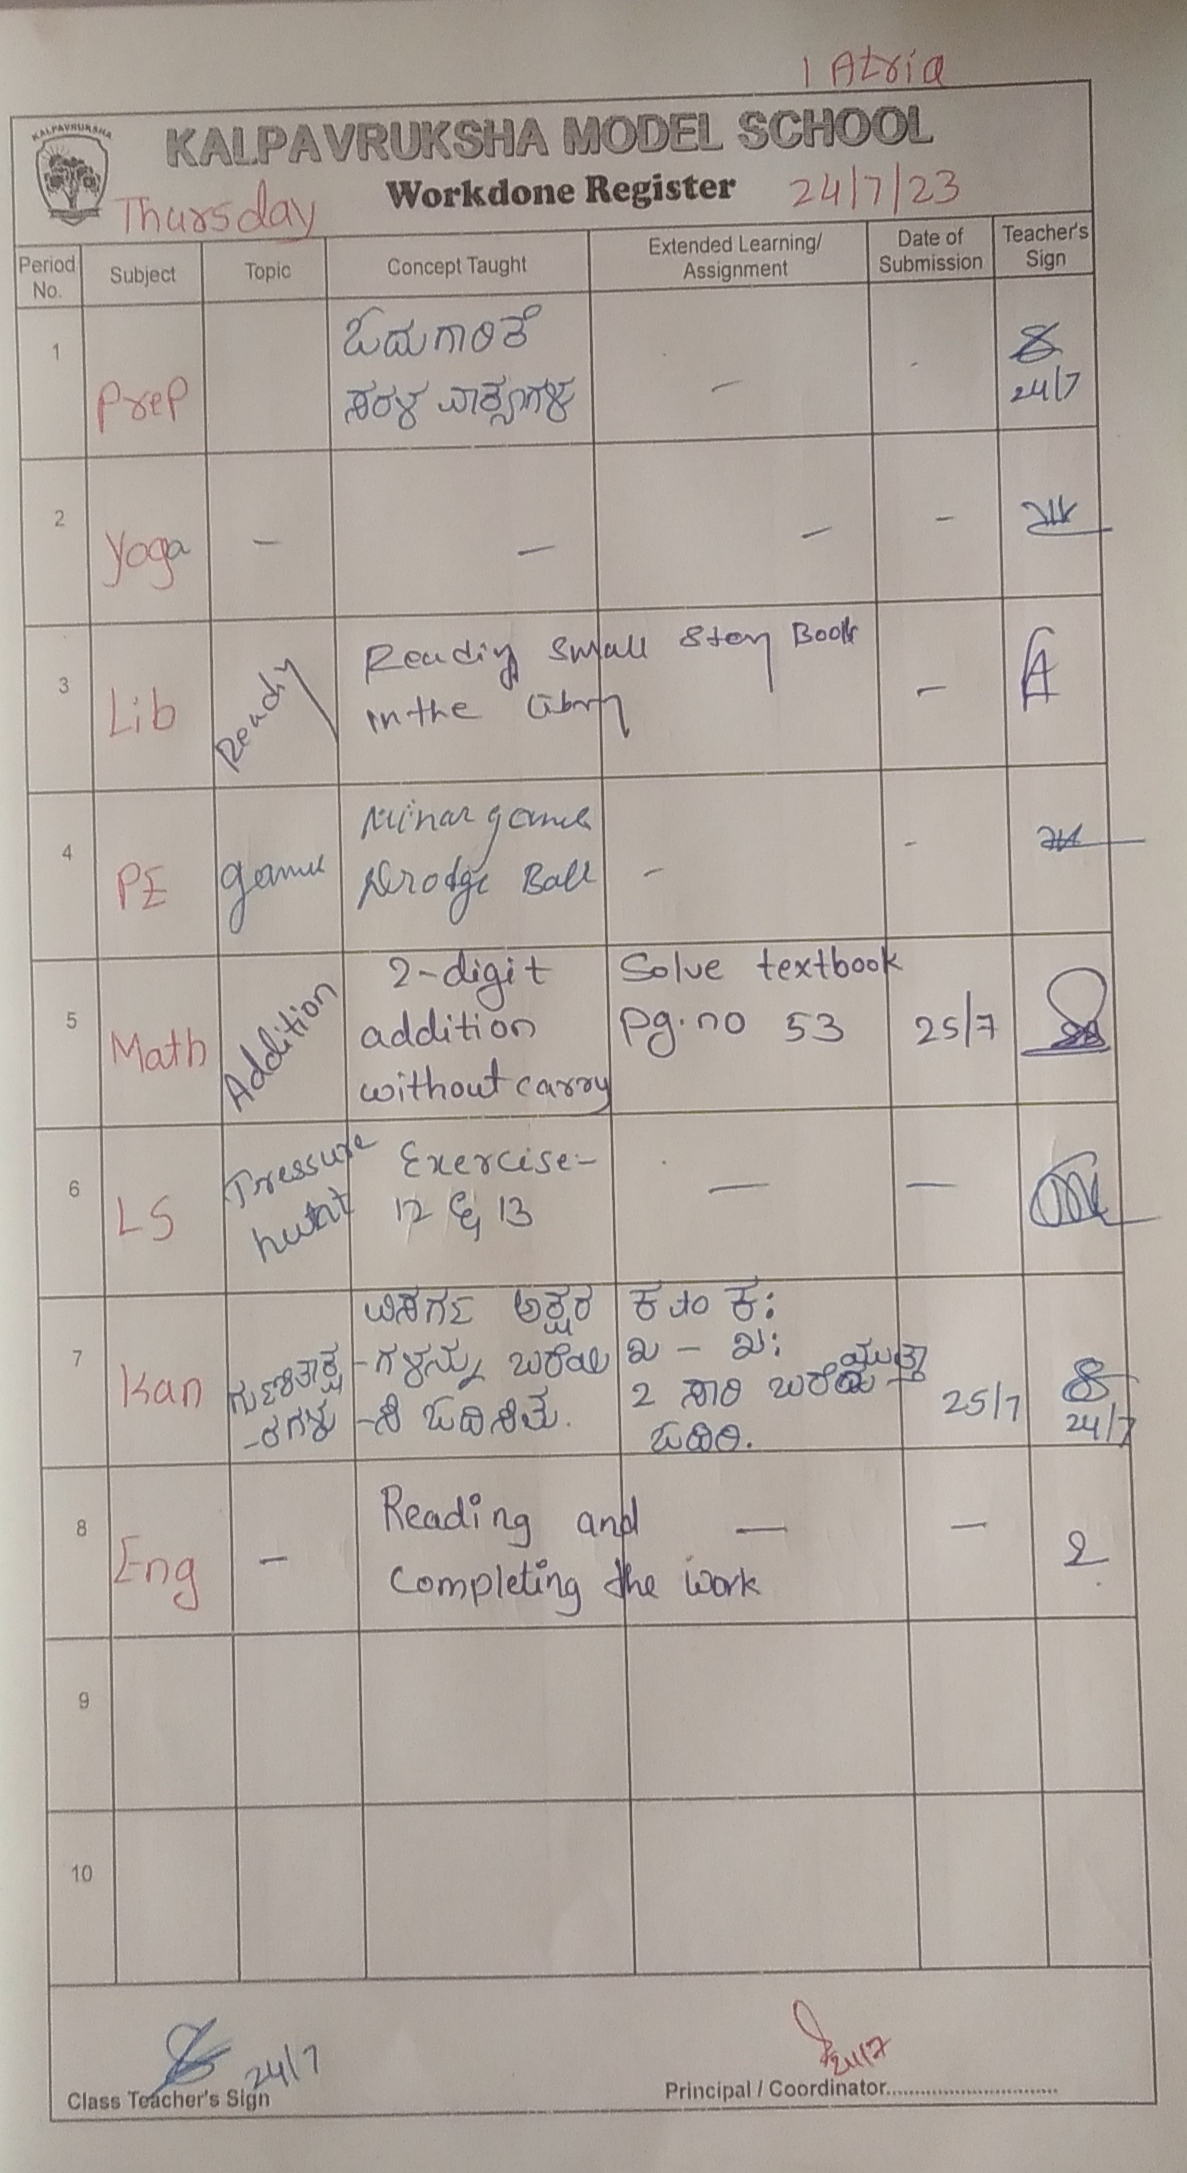 1 Atria
KALPAVRUKSHA
KALPAVRUKSHA MODEL SCHOOL
Thursday Workdone Register 24/7/23
Period No. Subject Topic Concept Taught Extended Learning/ Assignment Date of Submission Teacher's Sign
1 Prep ಓದುಗಾರಿಕೆ — -
ಸರಳ ವಾಕ್ಯಗಳ 24/7
2 Yoga — — — —
3 Lib Reading Small Story Book —
in the library
4 PE game Minar game — -
Drodge Ball
5 Math Addition 2-digit Solve textbook
addition Pg.no 53 25/7
without carry
6 LS Pressure Exercise:- — —
hunt 12 & 13
7 Kan ಗುಣಿತಾಕ್ಷ ವಿಸರ್ಗ ಅಕ್ಷರ ಕ to ಕಃ
-ರಗಳು -ಗಳನ್ನು ಬರೆಯಿ ಖ - ಖಃ
-ಸಿ ಓದಿಸಿತು. 2 ಸಾರಿ ಬರೆಯ ಮತ್ತು 25/7
ಓದಿರಿ. 24/7
8 Eng — Reading and — —
completing the work
9
10
24/7 24/7
Class Teacher's Sign Principal / Coordinator..............................